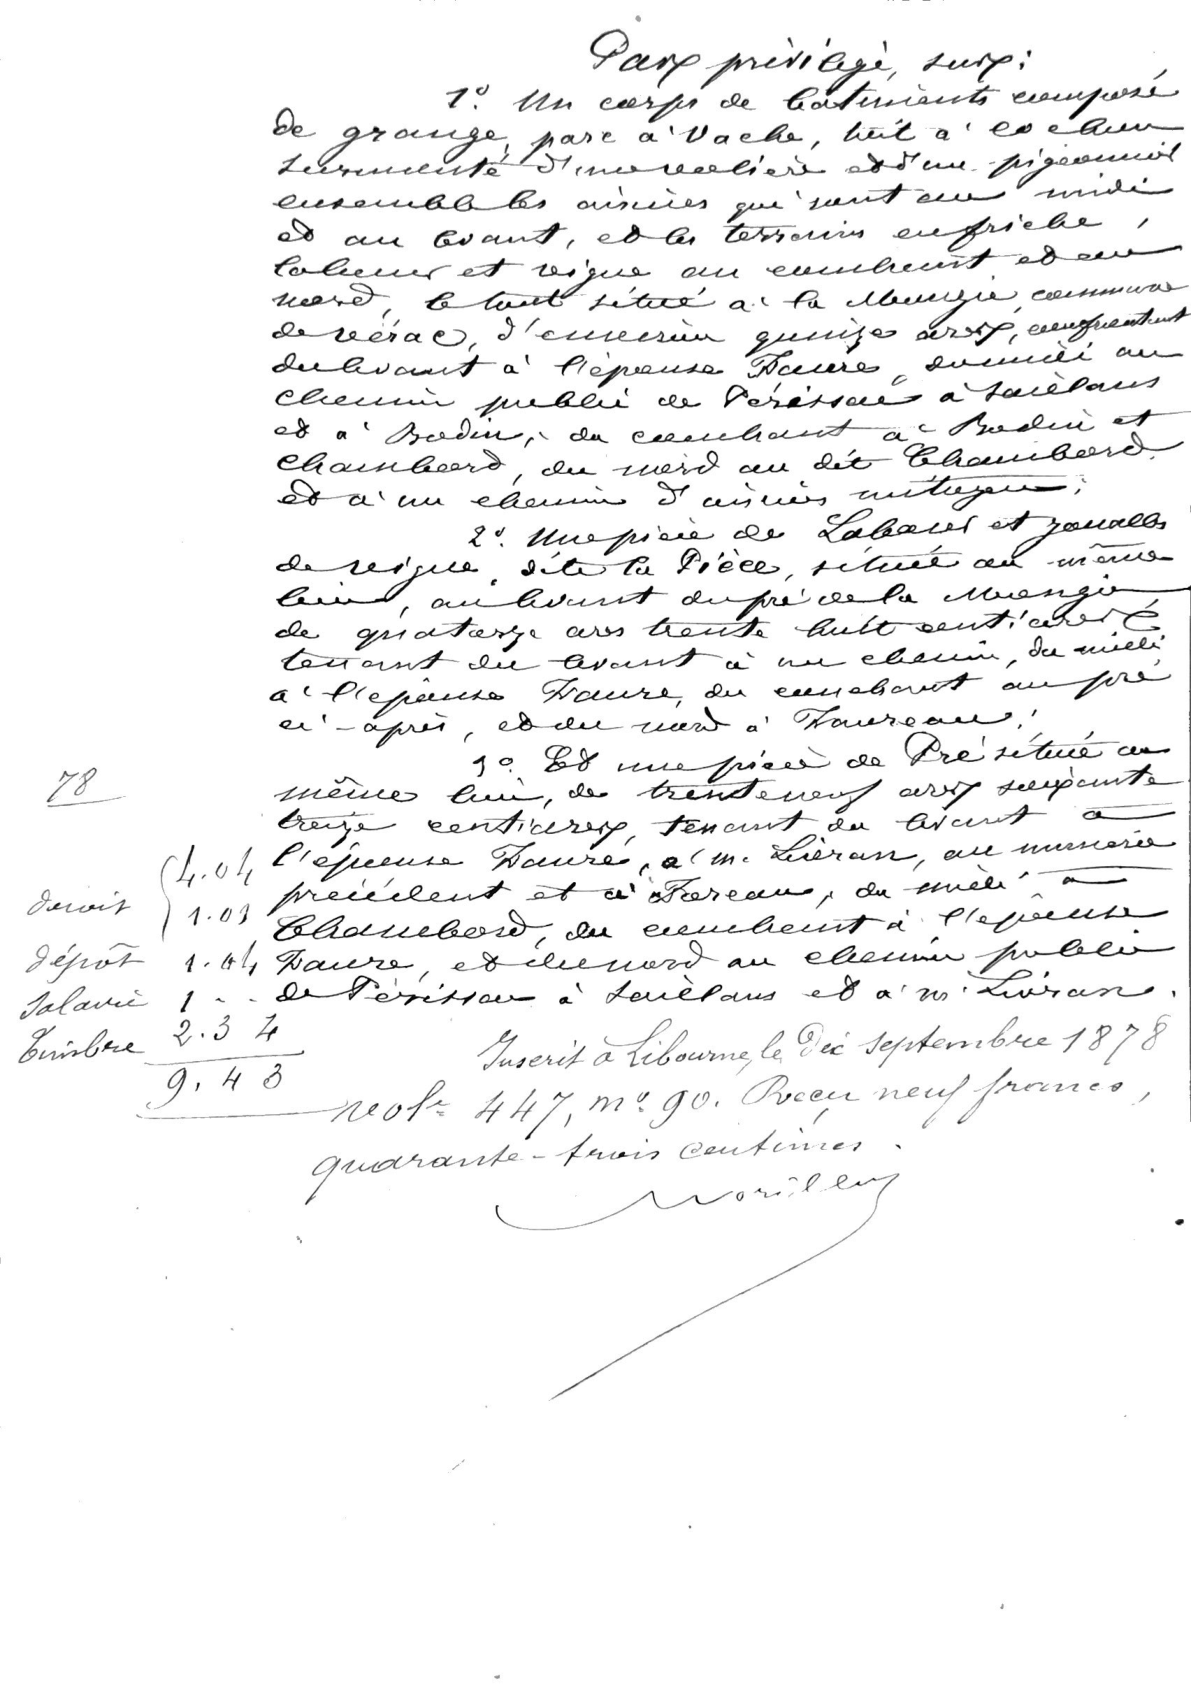 Par privilège, sur:
1º. Un corps de bâtiments composé
de grange, parc à Vache, toit à cochon
surmonté d'une volière et d'un pigeonnier
ensemble les aisines qui sont au midi
et au levant, et les terrains en friche,
labour et vigne au couchant et au
nord, le tout situé à la Mongie, commune
de Vérac, d'environ quinze ares, confrontant
du levant à l'épouse Faure, du midi au
chemin public de Périssac à Saillans
et à Bodin, du couchant à Bodin et
Chambord, du nord au dit Chambord
et à un chemin d'aisines mitoyen;
2º. Une pièce de Labour et joualles
de vigne, dite la Pièce, située au même
lieu, au levant du pré de la Mongie
de quatorze ares trente huit centiares
tenant du levant à un chemin, du midi
à l'épouse Faure, du couchant au pré
ci-après, et du nord à Faureau;
3º. Et une pièce de Pré située au
même lieu, de trente neuf ares soixante
treize centiares, tenant du levant à
l'épouse Faure, à m. Liéran, au numéro
précédent et à Foreau, du midi à
Chambord, du couchant à l'épouse
Faure, et du nord au chemin public
de Périssac à Saillans et à m. Liéran.
78
4.04
droits 1.01
dépôt 1.04
Salaire 1 - -
Timbre 2.34
9.43
Inscrit à Libourne, le Dix septembre 1878
vol. 447, nº 90. Reçu neuf francs,
quarante-trois centimes.